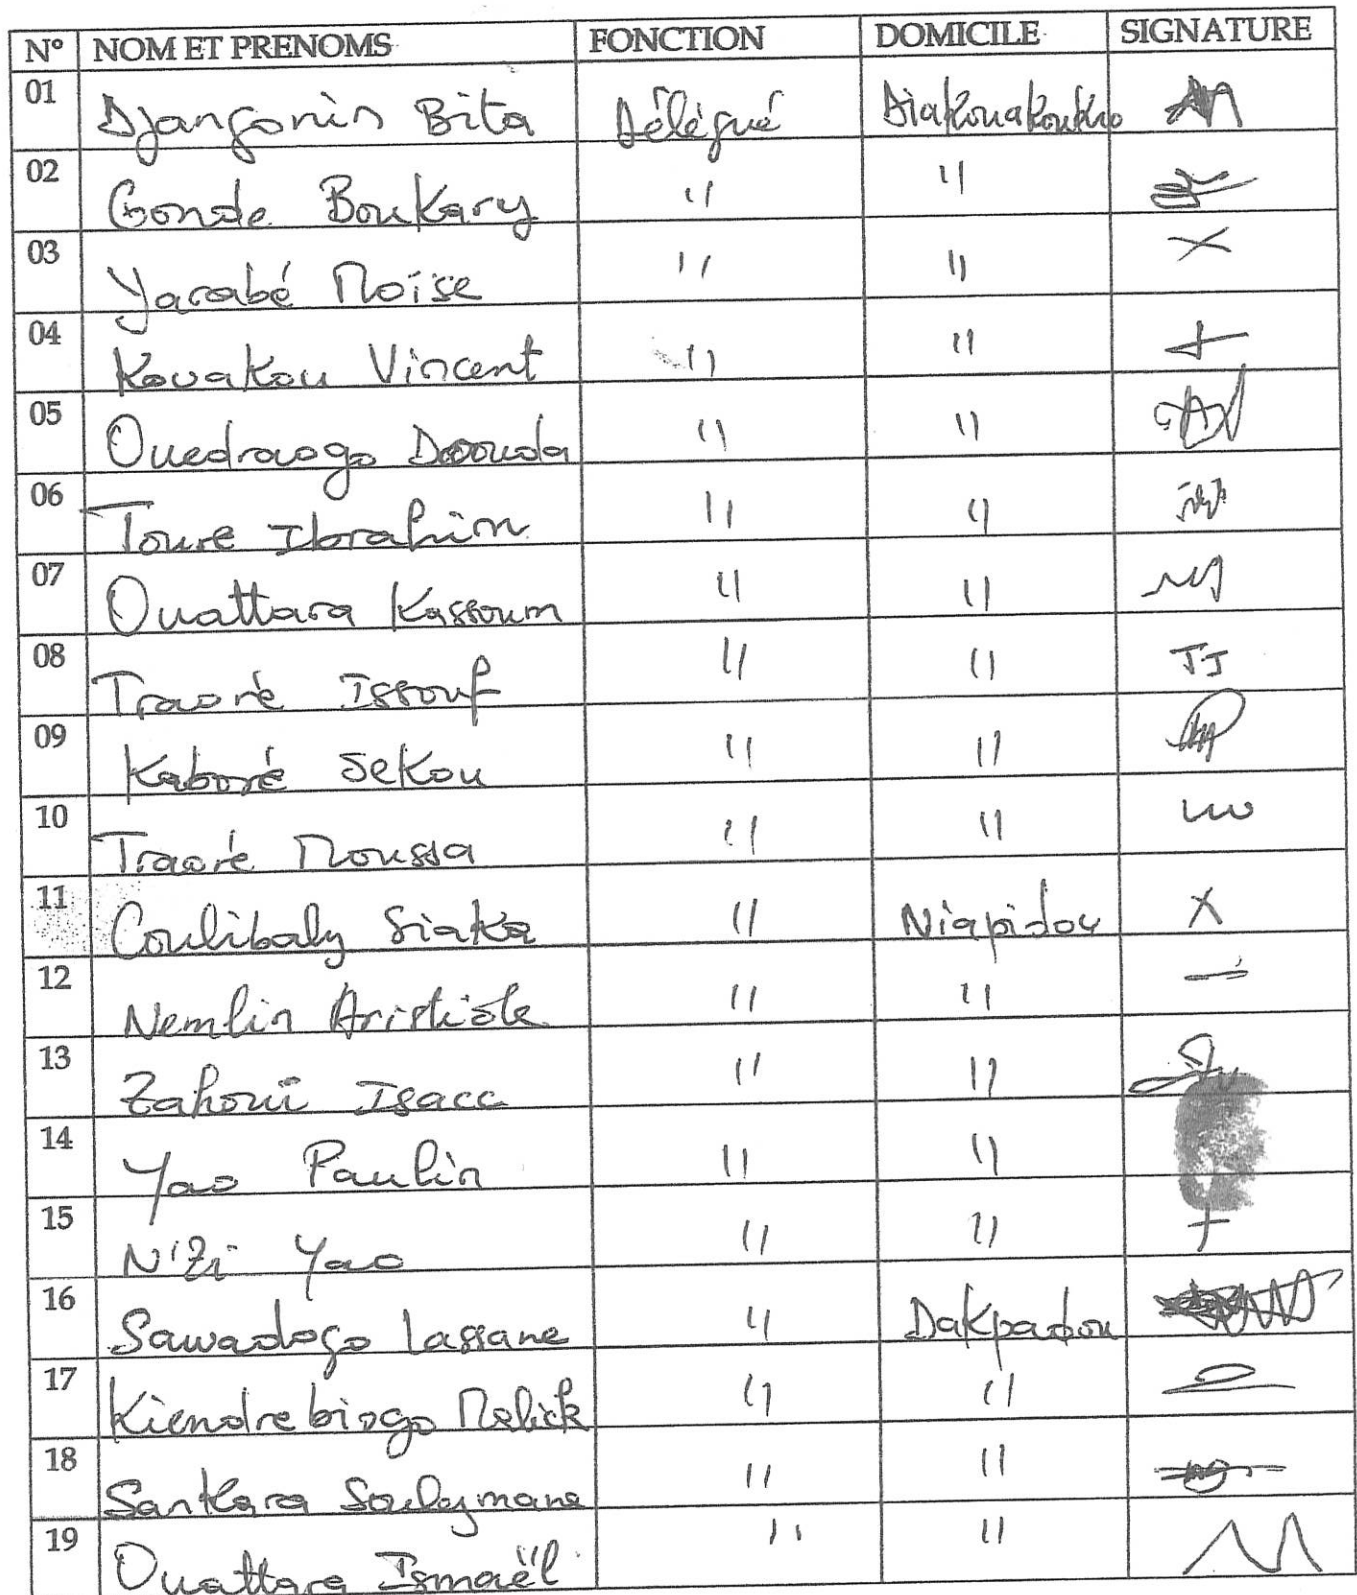 N° NOM ET PRENOMS FONCTION DOMICILE SIGNATURE
01 Djangonin Bita Délégué Diakouakoukro
02 Gonde Boukary " "
03 Yarabé Moïse " "
04 Kouakou Vincent " "
05 Ouedraogo Daouda " "
06 Toure Ibrahim " "
07 Ouattara Kassoum " "
08 Traoré Issouf " " TJ
09 Kaboré Sekou " "
10 Traoré Moussa " "
11 Coulibaly Siaka " Niapidou X
12 Nemlin Aristide " "
13 Zahoui Isacc " "
14 Yao Paulin " "
15 N'Zi Yao " " +
16 Sawadogo Lassane " Dakpadou
17 Kiendrebiogo Malick " "
18 Sankara Souleymane " "
19 Ouattara Ismaël " "